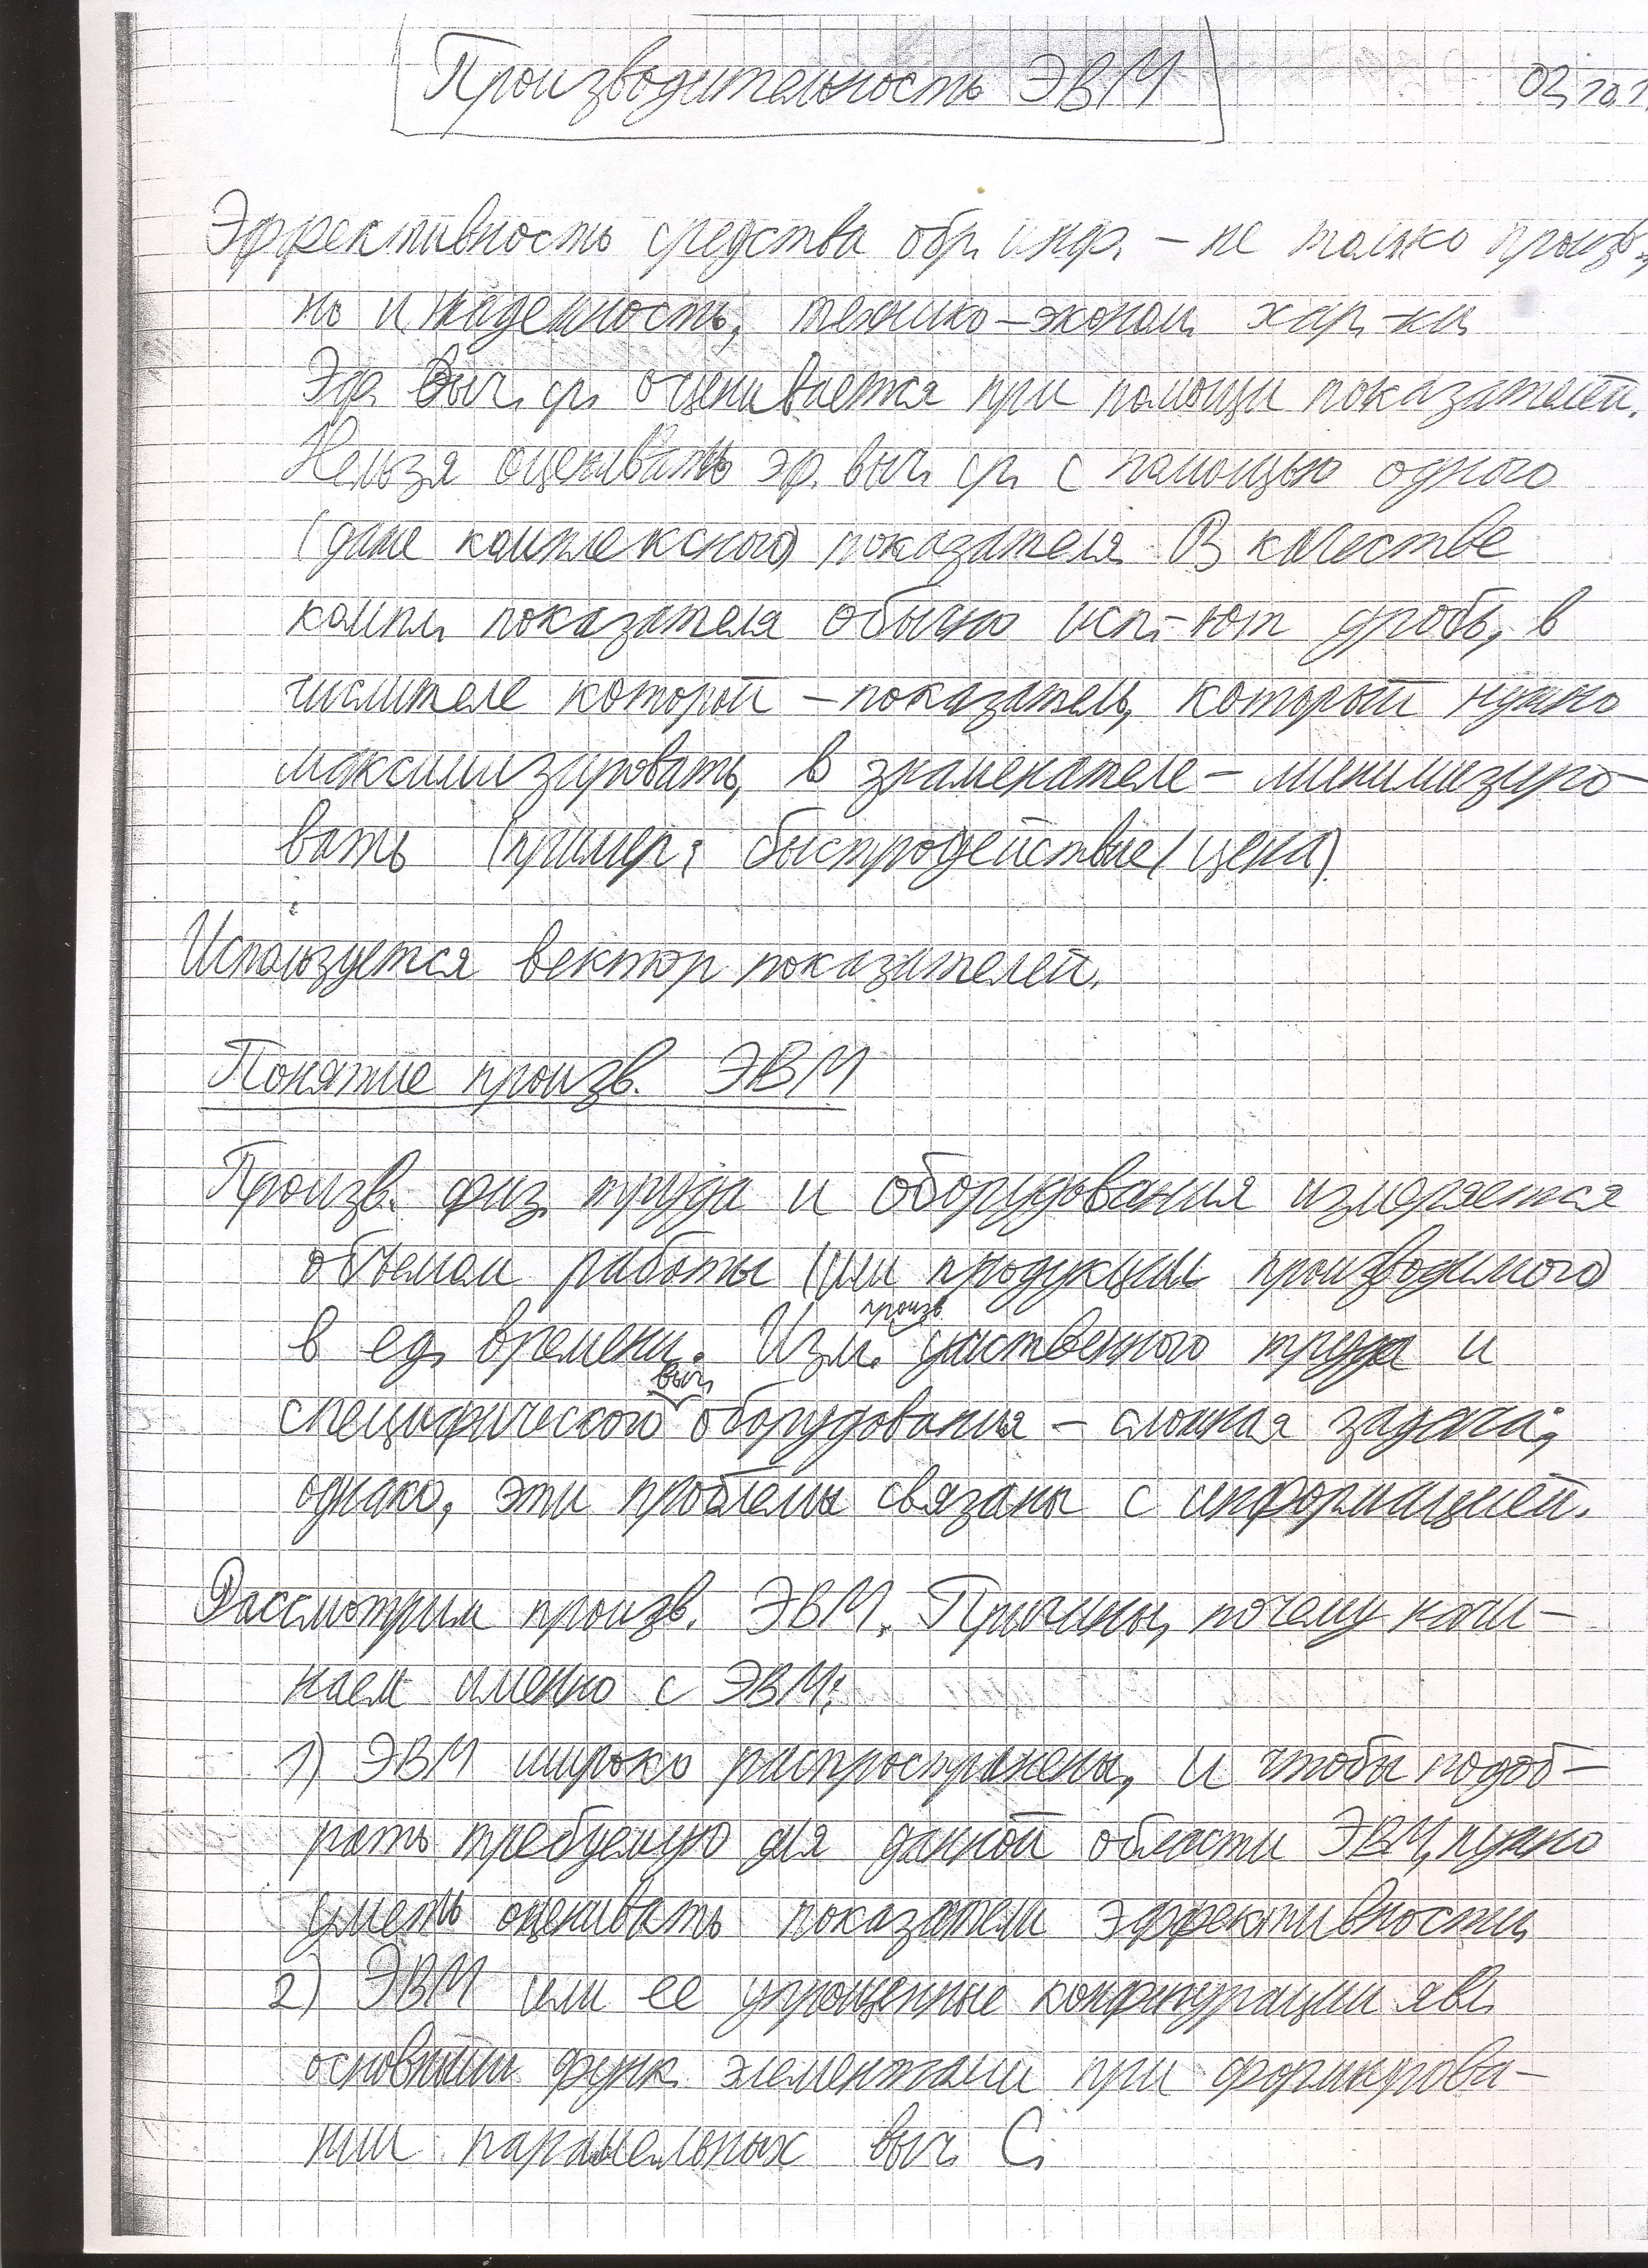 Производительность ЭВМ
Эффективность средства обр. инф. – не только произв.,
но и надежность, технико-эконом. хар-ки
Эф. выч. ср. оценивается при помощи показателей.
Нельзя оценивать эф. выч. ср. с помощью одного
(даже комплексного) показателя. В качестве
компл. показателя обычно исп-ют дробь, в
числителе которой – показатель, который нужно
максимизировать, в знаменателе – минимизиро-
вать (пример: быстродействие/цена)
Используется вектор показателей.
Понятие произв. ЭВМ
Произв. физ. труда и оборудования измеряется
объемом работы (или продукции) производимого
в ед. времени. Изм. произв. умственного труда и
специфического выч. оборудования – сложная задача;
однако, эти проблемы связаны с информацией.
Рассмотрим произв. ЭВМ. Причины, почему начи-
наем именно с ЭВМ:
1) ЭВМ широко распространены, и чтобы подоб-
рать требуемую для данной области ЭВМ, нужно
уметь оценивать показатели эффективности,
2) ЭВМ или ее упрощенные конфигурации явл.
основными функ. элементами при формирова-
нии параллельных выч. С.